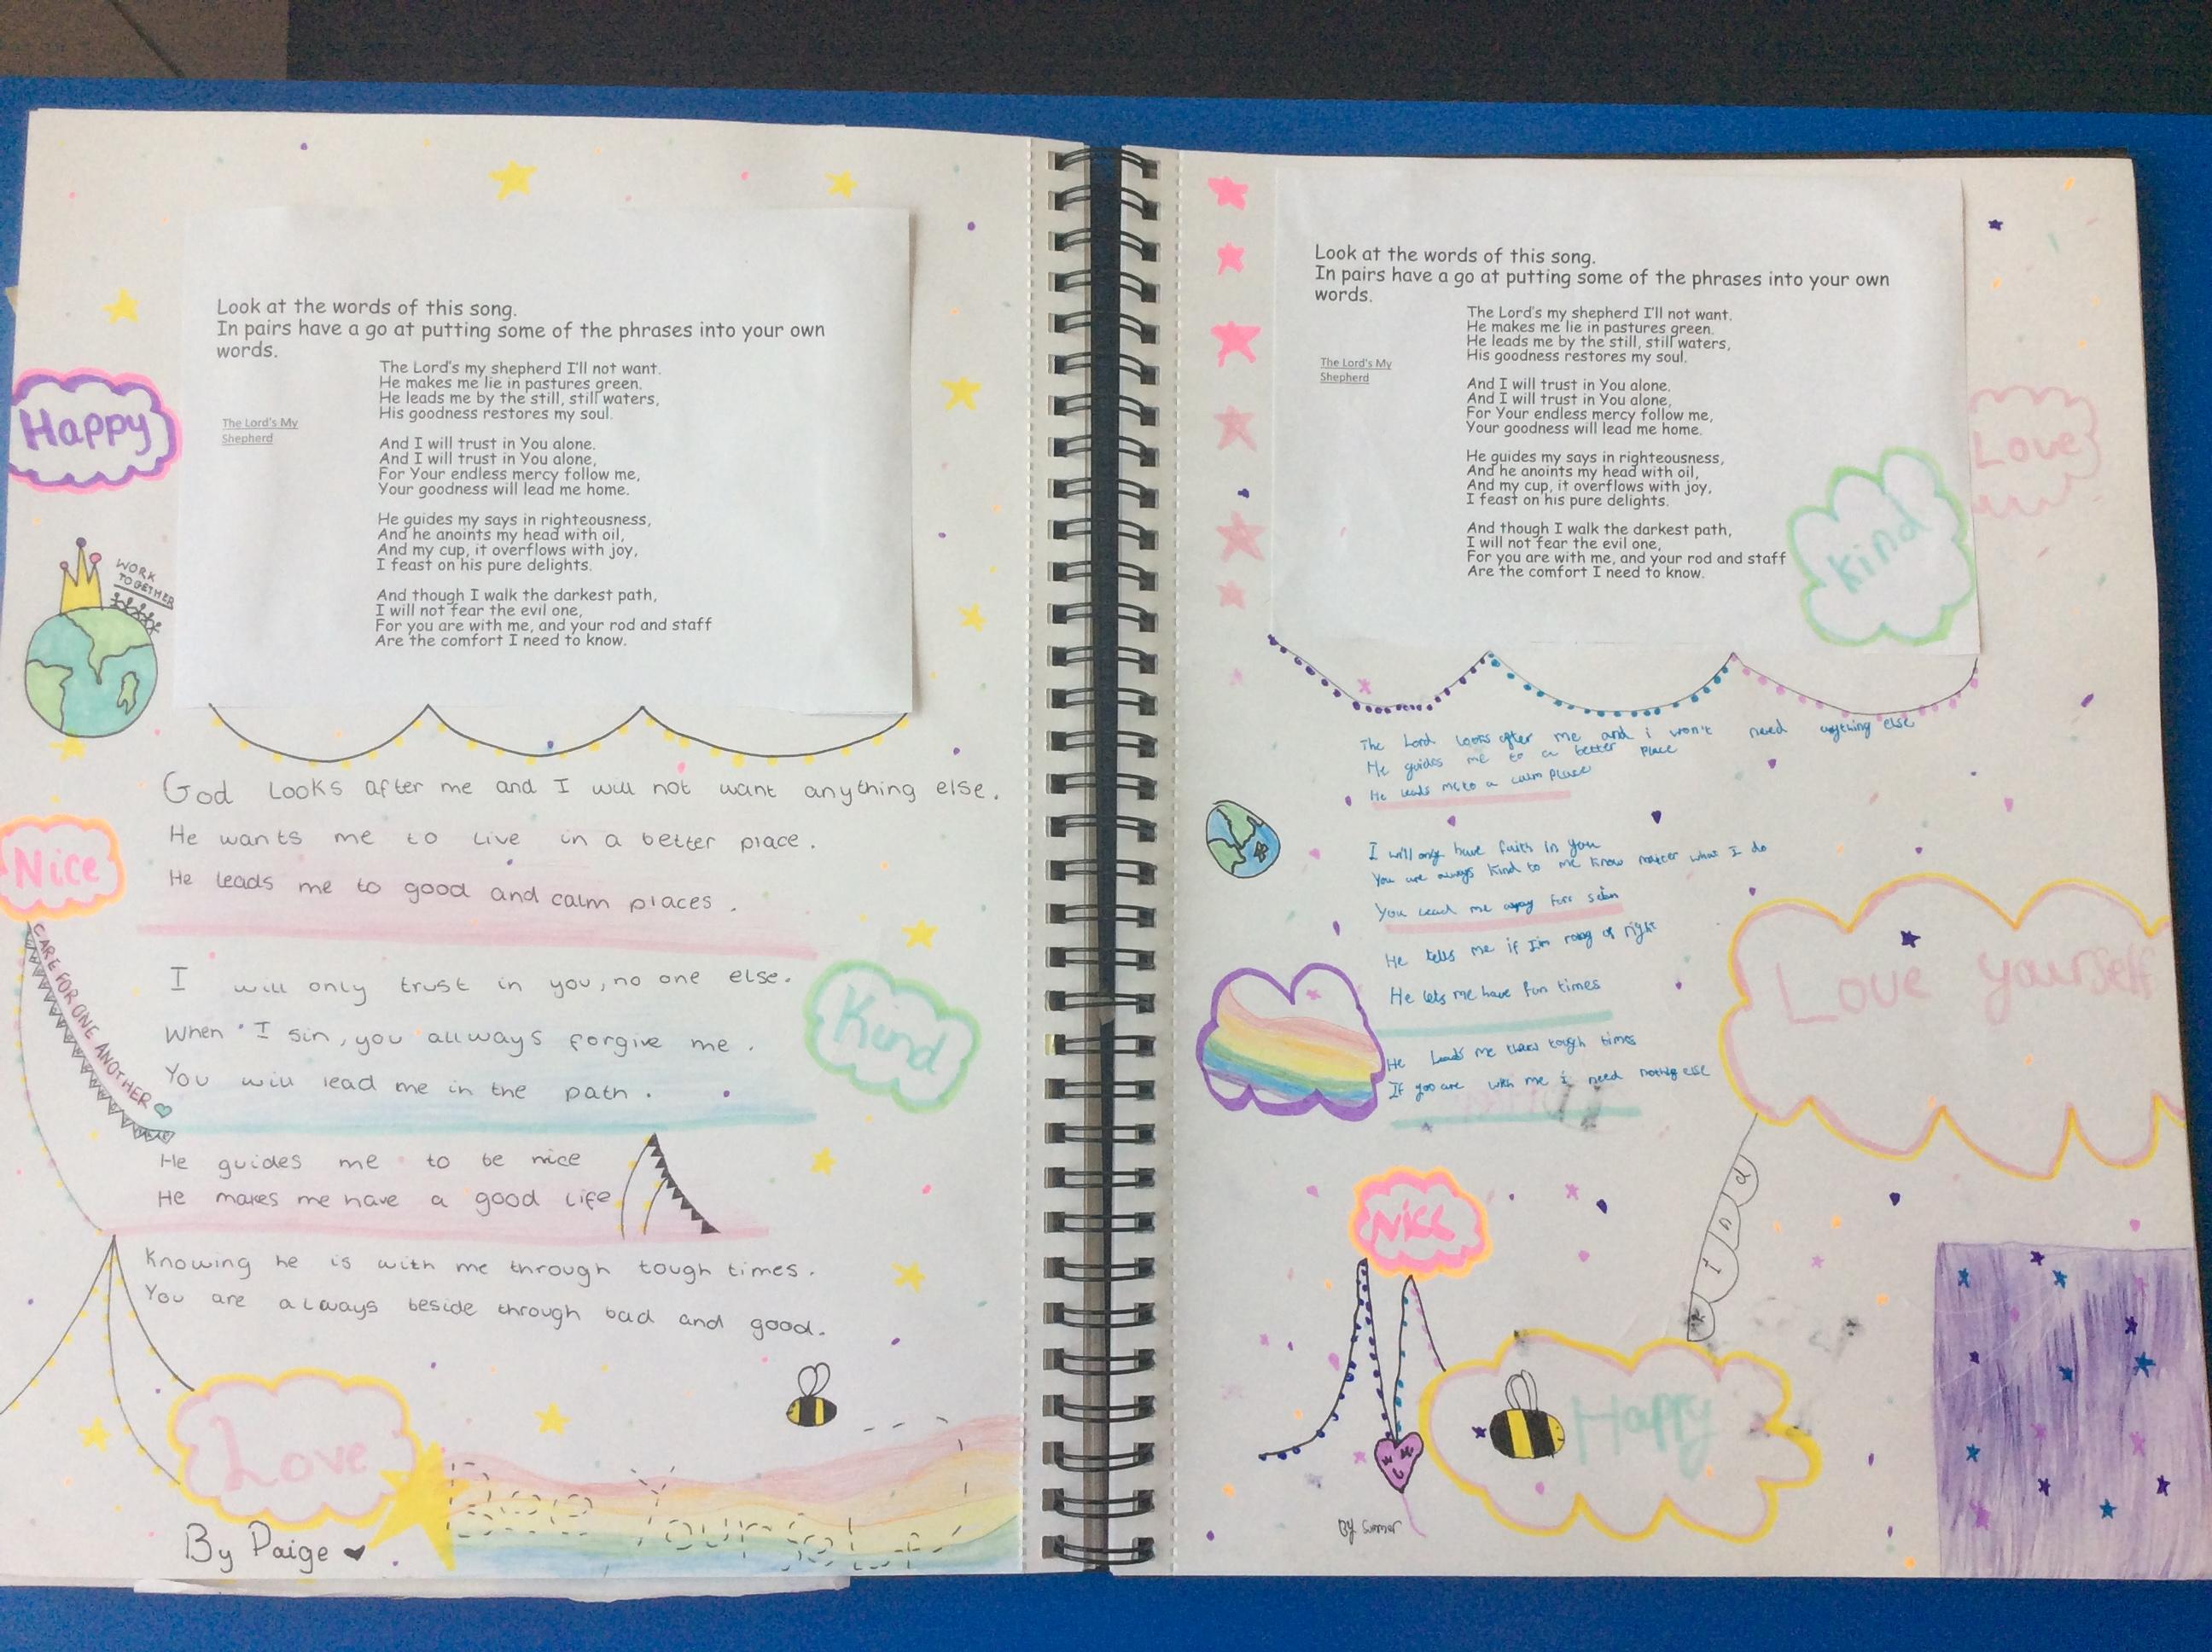 Look at the words of this song.
In pairs have a go at putting some of the phrases into your own
words.
The Lord's my shepherd I'll not want.
He makes me lie in pastures green.
He leads me by the still, still waters,
His goodness restores my soul.
The Lord's My
Shepherd
And I will trust in You alone.
And I will trust in You alone,
For Your endless mercy follow me,
Your goodness will lead me home.
He guides my says in righteousness,
And he anoints my head with oil,
And my cup, it overflows with joy,
I feast on his pure delights.
And though I walk the darkest path,
I will not fear the evil one,
For you are with me, and your rod and staff
Are the comfort I need to know.
Happy
WORK
TOGETHER
God Looks after me and I will not want anything else.
He wants me to live in a better place.
He leads me to good and calm places.
Nice
CARE FOR ONE ANOTHER
I will only trust in you, no one else.
When I sin, you allways forgive me.
You will lead me in the path.
Kind
He guides me to be nice
He makes me have a good life
Knowing he is with me through tough times.
You are always beside through bad and good.
Love
By Paige
Look at the words of this song.
In pairs have a go at putting some of the phrases into your own
words.
The Lord's my shepherd I'll not want.
He makes me lie in pastures green.
He leads me by the still, still waters,
His goodness restores my soul.
The Lord's My
Shepherd
And I will trust in You alone.
And I will trust in You alone,
For Your endless mercy follow me,
Your goodness will lead me home.
He guides my says in righteousness,
And he anoints my head with oil,
And my cup, it overflows with joy,
I feast on his pure delights.
And though I walk the darkest path,
I will not fear the evil one,
For you are with me, and your rod and staff
Are the comfort I need to know.
Love
Kind
The Lord looks after me and i won't need anything else
He guides me to a better place
He leads me to a calm place
I will only have faith in you
You are always kind to me know matter what I do
You lead me away
He tells me if I'm rong or right
He lets me have fun times
He leads me tough times
If you are with me i need nothing else
Love yourself
Nice
Happy
By Summer